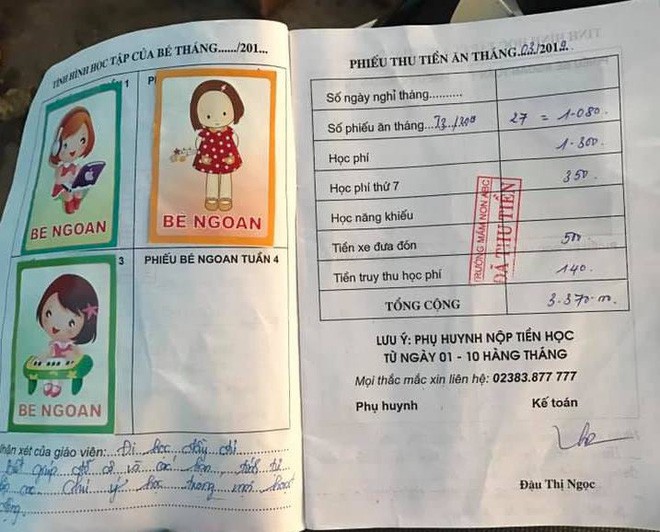 TÌNH HÌNH HỌC TẬP CỦA BÉ THÁNG....../201...
1
BÉ NGOAN
BÉ NGOAN
3
PHIẾU BÉ NGOAN TUẦN 4
BÉ NGOAN
nhận xét của giáo viên: Đi học đầy đủ
biết giúp đỡ cô và các bạn
Chú ý học trong mọi hoạt
động
PHIẾU THU TIỀN ĂN THÁNG 03/2019.
Số ngày nghỉ tháng..........
Số phiếu ăn tháng 27 = 1.080.
Học phí 1.300.
Học phí thứ 7 350.
Học năng khiếu
Tiền xe đưa đón 500
Tiền truy thu học phí 140.
TỔNG CỘNG 3.370.
TRƯỜNG MẦM NON ABC
ĐÃ THU TIỀN
LƯU Ý: PHỤ HUYNH NỘP TIỀN HỌC
TỪ NGÀY 01 - 10 HÀNG THÁNG
Mọi thắc mắc xin liên hệ: 02383.877 777
Phụ huynh Kế toán
Đậu Thị Ngọc